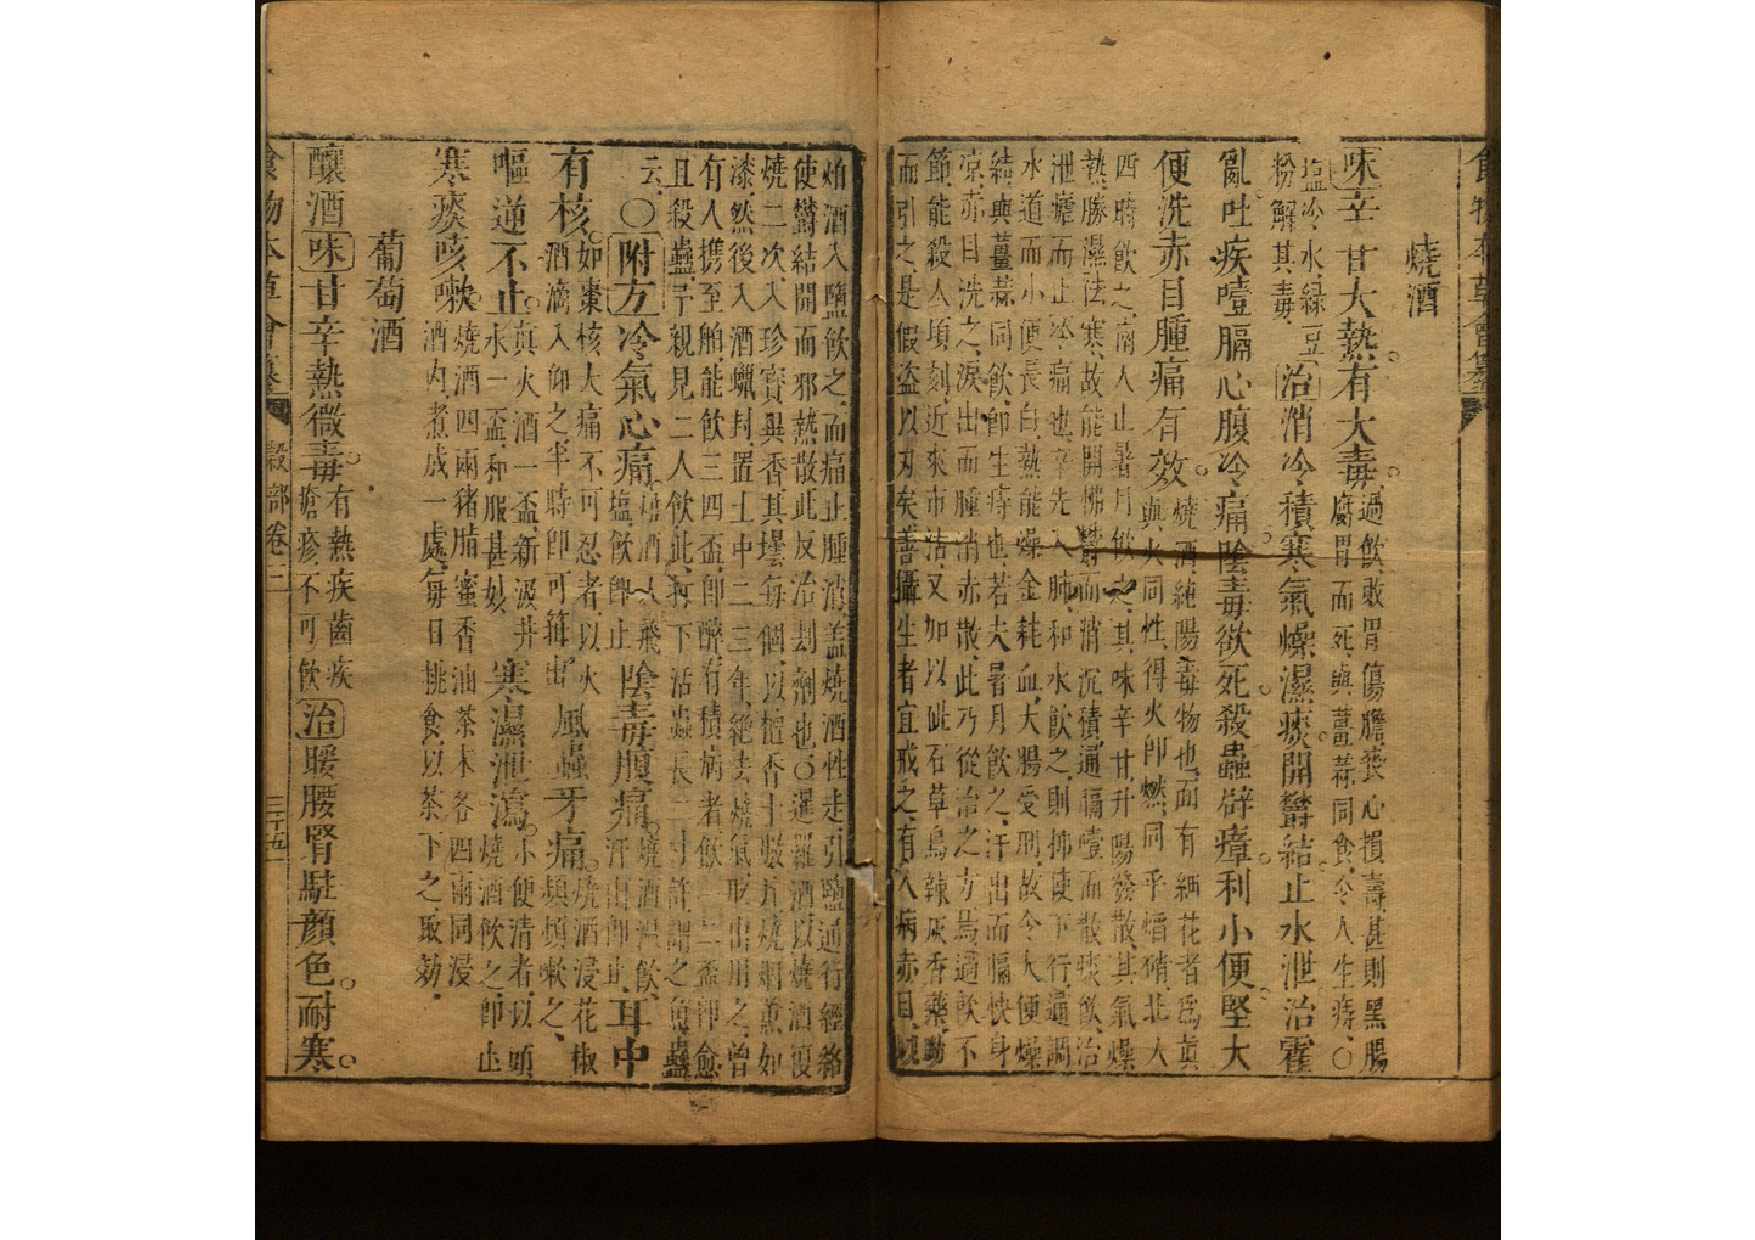 食物本草會纂
燒酒
味辛甘大熱。有大毒。過飲敗胃傷膽喪心損壽甚則黑腸腐胃而死與薑蒜同食令人生痔〇
塩冷水綠豆粉解其毒治消冷積寒氣燥濕痰。開鬱結。止水泄治霍
亂。吐疾噎膈心腹冷痛。陰毒欲死。殺蟲辟瘴。利小便。堅大
便。洗赤目腫痛有效。燒酒純陽毒物也面有細花者爲真與火同性得火即燃同乎焰硝北人
四時飲之南人止暑月飲之其味辛甘升陽發散其氣燥
熱勝濕祛寒故能開怫鬱而消沉積通膈噎而散痰飲治
泄瘧而止冷痛也辛先入肺和水飲之則抑使下行通調
水道而小便長白熱能燥金耗血大腸受刑故令大便燥
結與薑蒜同飲即生痔也若夫暑月飲之汗出而膈快身
涼赤目洗之淚出而腫消赤散此乃從治之方焉過飲不
節能殺人頃刻近來市沽又加以砒石草烏辣灰香藥助
而引之是假盜以刃矣善攝生者宜戒之有人病赤目
酒入鹽飲之而痛止腫消蓋燒酒性走引鹽通行經絡
使鬱結開而邪熱散此反治刦劑也〇暹羅酒以燒酒復
燒二次入珍寶異香其壜每個以檀香十數斤燒烟薰如
漆然後入酒蠟封置土中二三年絕去燒氣取出用之曾
有人携至舶能飲三四盃即醉有積病者飲一二盃即愈
且殺蠱予親見二人飲此打下活蟲長二寸許謂之魚蠱
云〇附方冷氣心痛燒酒入飛塩飲即止陰毒腹痛。燒酒溫飲汗出即止耳中
有核。如棗核大痛不可忍者以火酒滴入仰之半時即可箝出風蟲牙痛。燒酒浸花椒頻頻嗽之
嘔逆不止。真火酒一盃新汲井水一盃和服甚妙寒濕泄瀉。小便清者以頭燒酒飲之即止
寒痰咳嗽。燒酒四兩猪脂蜜香油茶末各四兩同浸酒內煮成一處每日挑食以茶下之取効
葡萄酒
釀酒味甘辛熱微毒。有熱疾齒疾瘡疹不可飲治暖腰腎駐顏色。耐寒。
食物本草會纂 穀部卷二 三十五